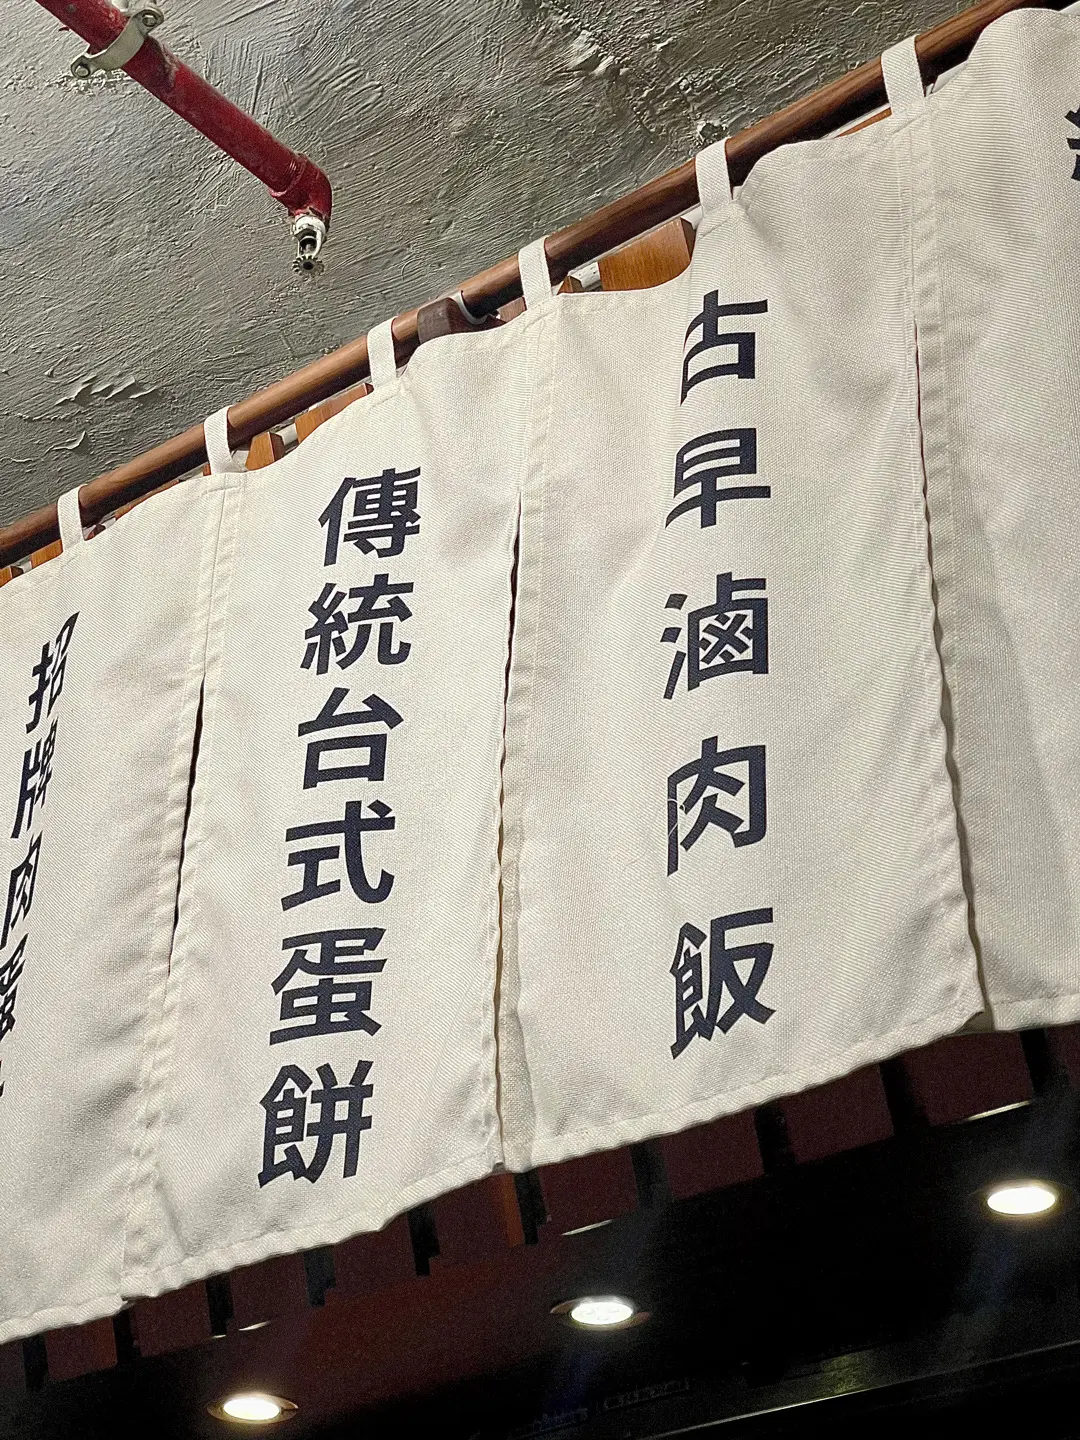 古早滷肉飯
傳統台式蛋餅
招牌肉蛋